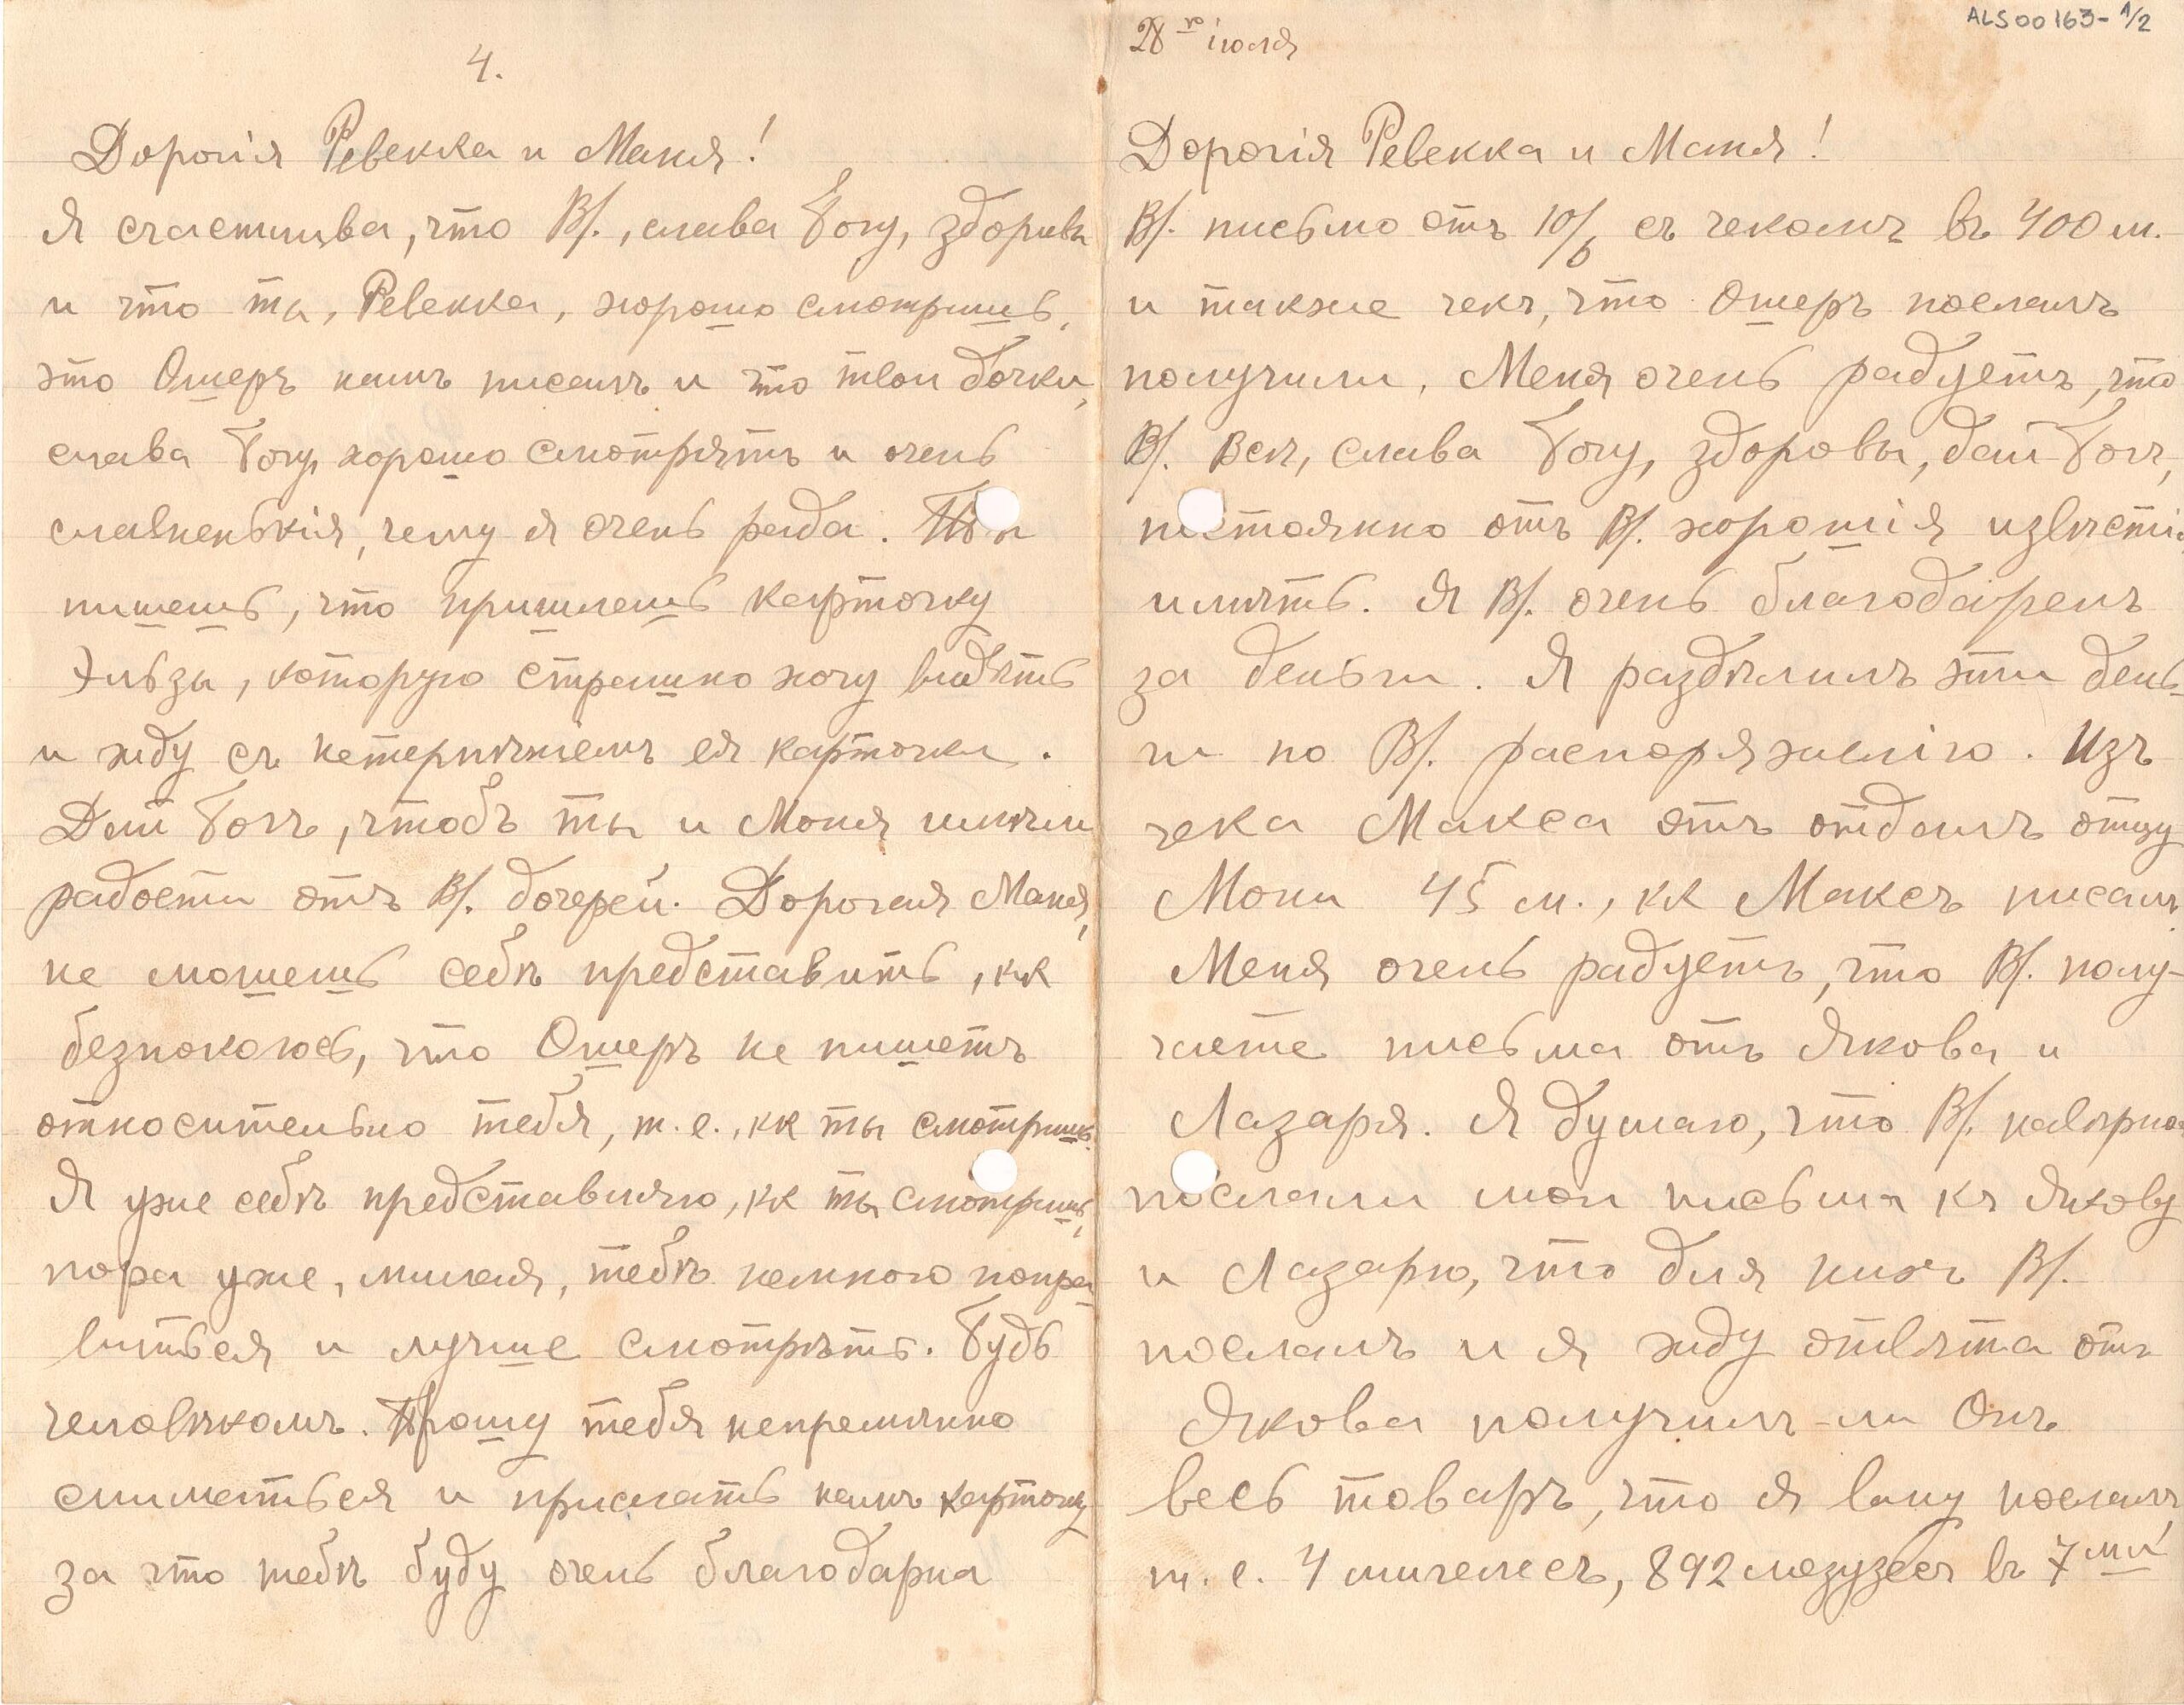 4.
Дорогія Ревекка и Маня!
Я счастлива, что В/., слава Богу, здоровы
и что ты, Ревекка, хорошо смотришь,
это Ошеръ намъ писалъ и что твои дочки,
слава Богу, хорошо смотрятъ и очень
славненькія, чему я очень рада. Ты
пишешь, что пришлешь карточку
Эльзы, которую страшно хочу видѣть
и жду съ нетерпѣніемъ ея карточки.
Дай Богъ, чтобъ ты и Моня имѣли
радости отъ В/. дочерей. Дорогая Маня,
не можешь себѣ представить, кк
безпокоюсь, что Ошеръ не пишетъ
относительно тебя, т.е., кк ты смотришь.
Я уже себѣ представляю, кк ты смотришь,
пора уже, милая, тебѣ немного попра-
виться и лучше смотрѣть. Будь
человѣкомъ. Прошу тебя непремѣнно
сниматься и прислать намъ карточку
за что тебѣ буду очень благодарна
ALS00163-1/2
28го іюля
Дорогія Ревекка и Маня!
В/. письмо отъ 10/6 съ чекомъ въ 400 м.
и также чекъ, что Ошеръ послалъ
получили. Меня очень радуетъ, что
В/. всѣ, слава Богу, здоровы, дай Богъ,
постоянно отъ В/. хорошія извѣстія
имѣть. Я В/. очень благодаренъ
за деньги. Я раздѣлилъ эти день-
ги по В/. распоряженію. Изъ
чека Макса отъ отдалъ отцу
Мони 45 м., кк Максъ писалъ.
Меня очень радуетъ, что В/. полу-
чаете письма отъ Якова и
Лазаря. Я думаю, что В/. навѣрно
послали мои письма къ Якову
и Лазарю, что для нихъ В/.
послалъ и я жду отвѣта отъ
Якова получилъ-ли Онъ
весь товаръ, что я вамъ послалъ,
т.е. 4 мигелесъ, 892 мезузесъ въ 7ми